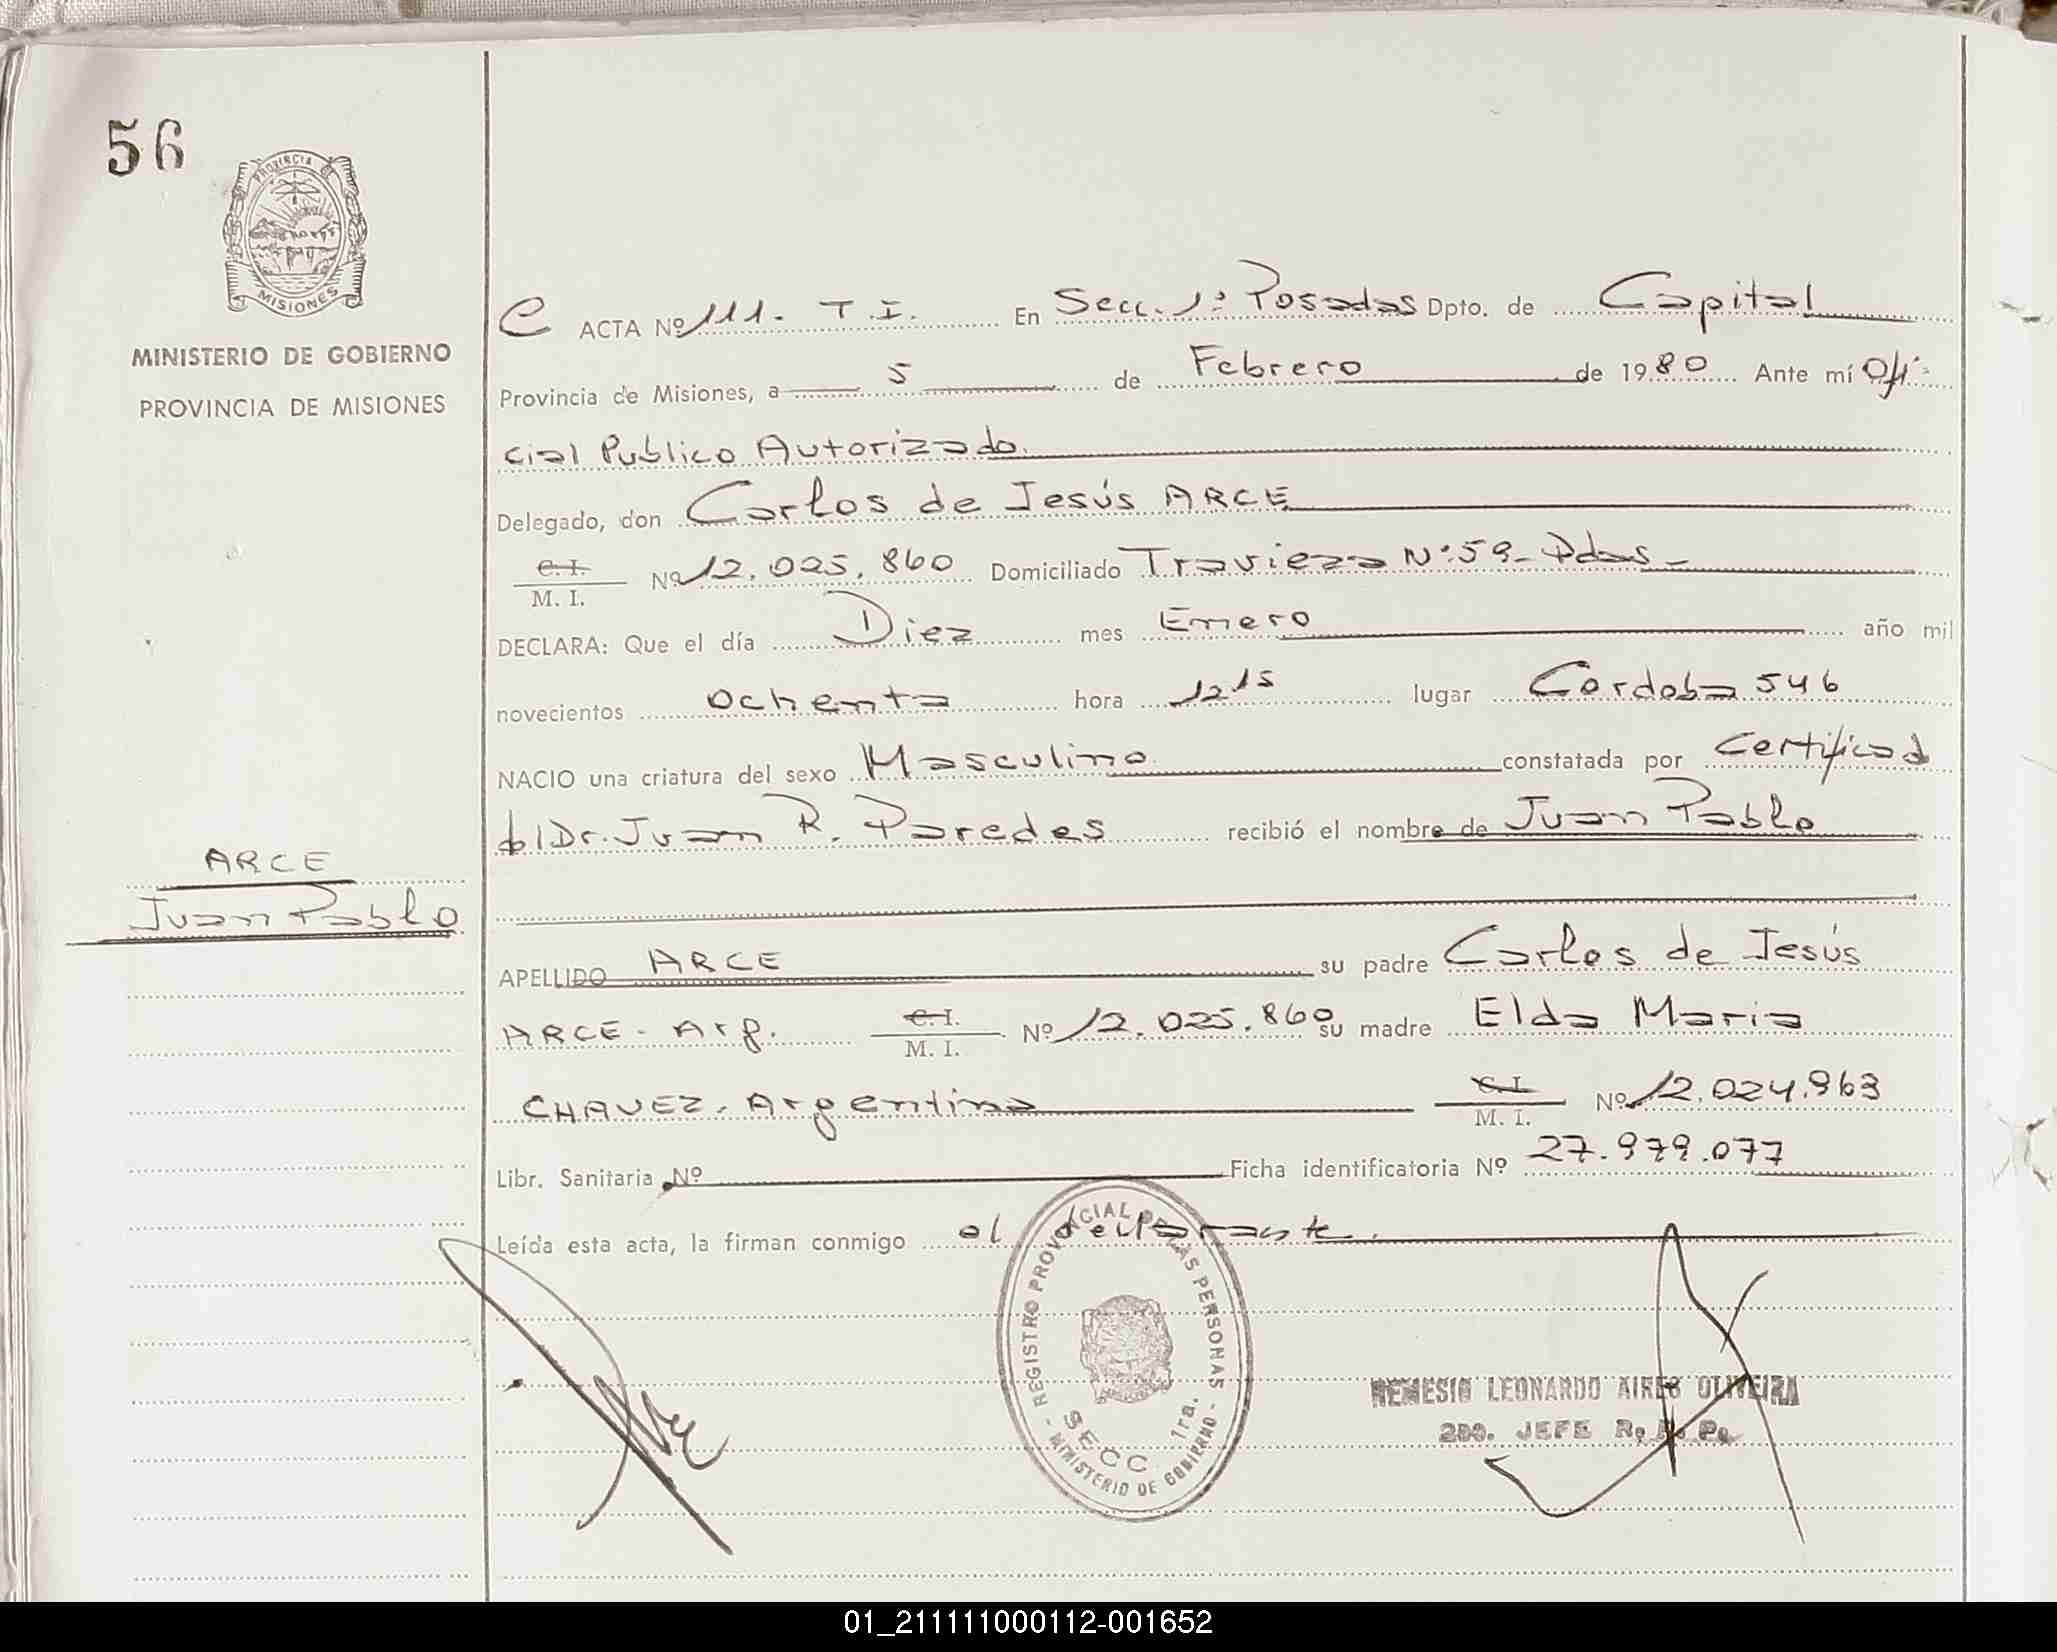 56
PROVINCIA
MISIONES
MINISTERIO DE GOBIERNO
PROVINCIA DE MISIONES
C ACTA Nº 111. T.I. En Secc. 1ª Posadas Dpto. de Capital
Provincia de Misiones, a 5 de Febrero de 1980 Ante mí Ofi-
cial Publico Autorizado.
Delegado, don Carlos de Jesús ARCE
C. I.
M. I. Nº 12.025.860 Domiciliado Travieza Nº 59 - Pdas -
DECLARA: Que el día Diez mes Enero año mil
novecientos ochenta hora 12 15 lugar Cordoba 546
NACIO una criatura del sexo Masculino constatada por Certificad
d/Dr. Juan R. Paredes recibió el nombre de Juan Pablo
ARCE
Juan Pablo
APELLIDO ARCE su padre Carlos de Jesús
ARCE - Arg. C. I.
M. I. Nº 12.025.860 su madre Elda Maria
CHAVEZ. Argentina C. I.
M. I. Nº 12.024.963
Libr. Sanitaria Nº Ficha identificatoria Nº 27.979.077
Leída esta acta, la firman conmigo el declarante.
- REGISTRO PROVINCIAL DE LAS PERSONAS -
SECC 1ra.
MINISTERIO DE GOBIERNO
NEMESIO LEONARDO AIRES OLIVEIRA
2DO. JEFE R. P. P.
01_211111000112-001652